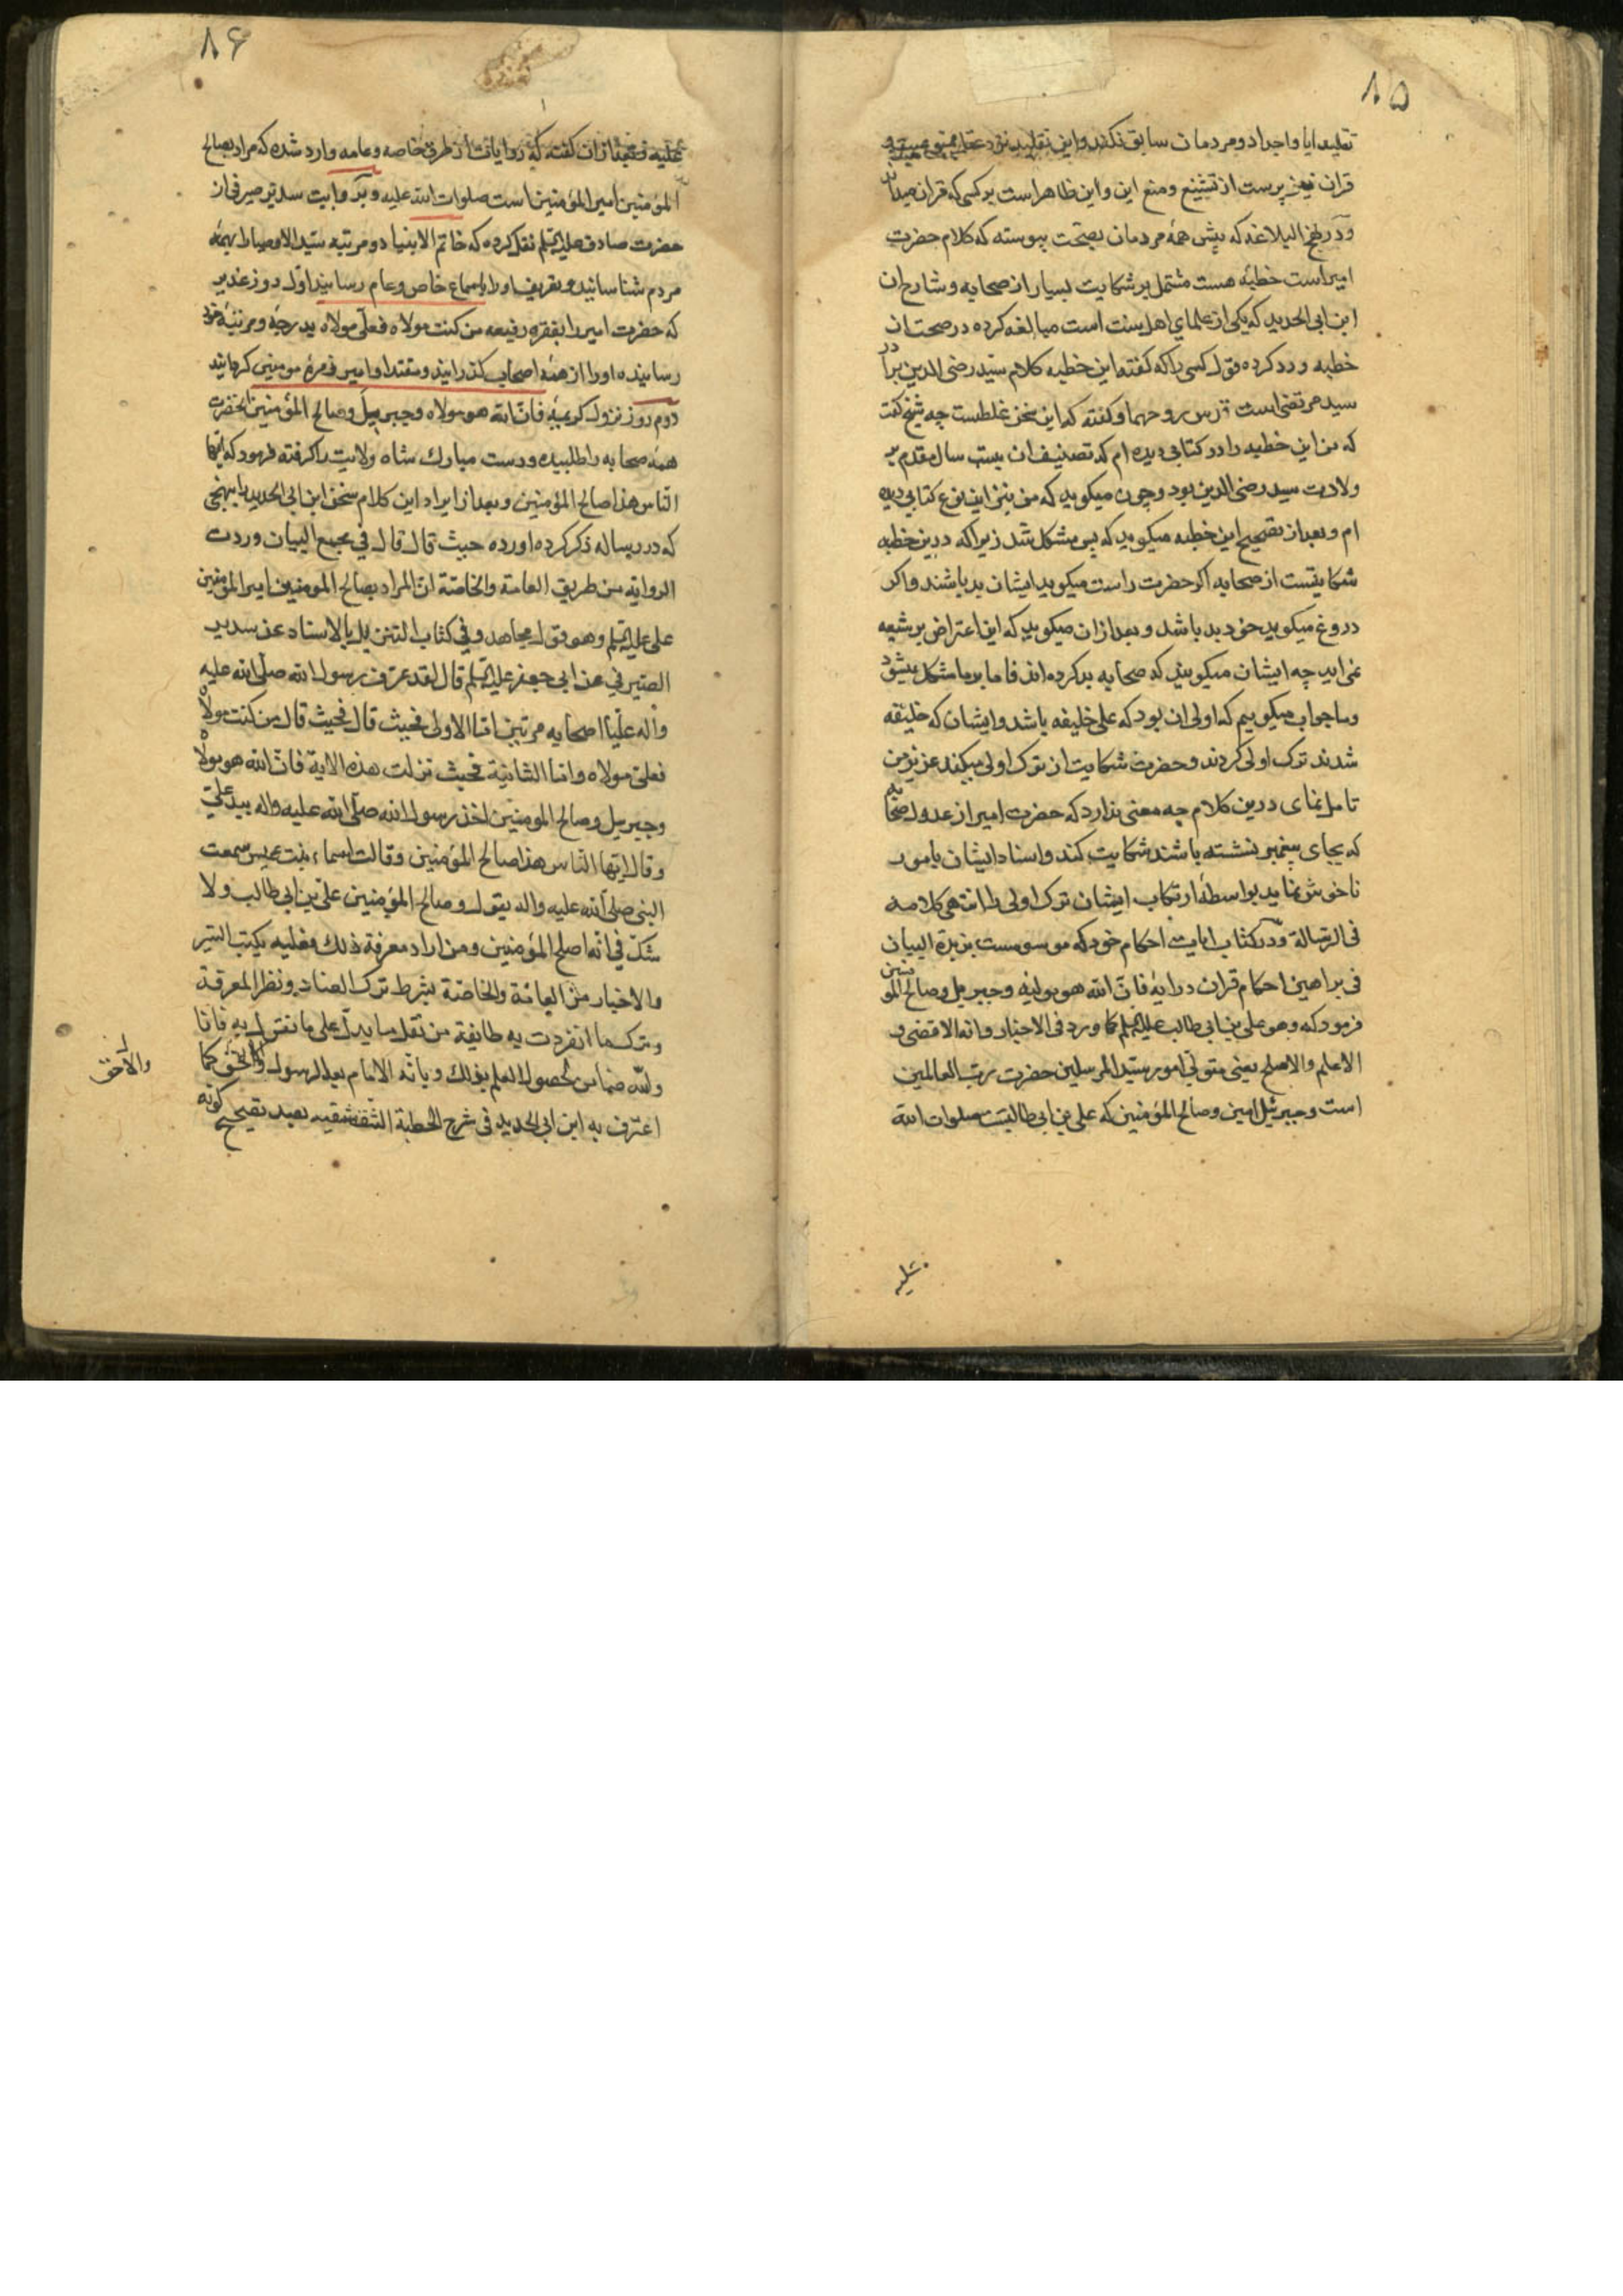 ۸۵
تقلید ابا واجداد ومردمان سابق نکنند واین تقلید نزد عقلا
قران نیز پرست از تشنیع ومنع این واین ظاهراست برکسی که قران میداند
ودر نهج البلاغه که پیش همهٔ مردمان بصحت پیوسته که کلام حضرت
امیراست خطبهٔ هست مشتمل بر شکایت بسیار از صحابه وشارح ان
ابن ابی الحدید که یکی از علمای اهل سنت است مبالغه کرده در صحت ان
خطبه ورد کرده قول کسی را که گفته این خطبه کلام سید رضی الدین برادر
سید مرتضی است قدس روحهما وگفته که این سخن غلطست چه شیخ گفت
که من این خطبه را در کتابی دیده ام که تصنیف ان بیست سال مقدم بر
ولادت سید رضی الدین بود وچون میکوید که من نیز این نوع کتابی دیده
ام وبعد از تصحیح این خطبه میکوید که پس مشکل شد زیرا که درین خطبه
شکایتست از صحابه اکر حضرت راست میکوید ایشان بد باشند واکر
دروغ میکوید خود بد باشد وبعد ازان میکوید که این اعتراض بر شیعه
نمی اید چه ایشان میکویند که صحابه بد کرده اند فاما بر ما مشکل میشود
وما جواب میکوییم که اولی ان بود که علی خلیفه باشد وایشان که خلیفه
شدند ترک اولی کردند وحضرت شکایت از ترک اولی میکند عزیز من
تامل نمای درین کلام چه معنی ندارد که حضرت امیر از عدول صحابه
که بجای پیغمبر نشسته باشند شکایت کند واسناد ایشان بامور
ناخوش نماید بواسطهٔ ارتکاب ایشان ترک اولی را انتهی کلامه
فی الرسالة ودر کتاب ایات احکام خود که موسومست بزبدة البیان
فی براهین احکام قران در ایهٔ فان الله هو مولیه وجبریل وصالح المومنین
فرمود که وهو علی بن ابی طالب علیه السلم کما ورد فی الاخبار وانه الاقضی و
الاعلم والاصلح یعنی متولی امور سید المرسلین حضرت رب العالمین
است وجبرئیل امین وصالح المؤمنین که علی بن ابی طالبست صلوات الله
علیه
۸۶
علیه وبعد ازان گفته که روایات از طرق خاصه وعامه وارد شده که مراد بصالح
المؤمنین امیر المؤمنین است صلوات الله علیه وبروایت سدیر صیرفی از
حضرت صادق علیه السلم نقل کرده که خاتم الانبیا دو مرتبه سید الاوصیا را بهمهٔ
مردم شناسانید وتعریف او را باسماع خاص وعام رسانید اول روز غدیر
که حضرت امیر را بفقره رفیعه من کنت مولاه فعلی مولاه بدرجه ومرتبهٔ خود
رسانیده اورا از همهٔ اصحاب کذرانید ومقتدا وامیر زمرهٔ مومنین کردانید
دوم روز نزول کریمهٔ فان الله هو مولاه وجبریل وصالح المؤمنین انحضرت
همهٔ صحابه را طلبیده ودست مبارک شاه ولایت را کرفته فرمود که ایها
الناس هذا صالح المؤمنین وبعد از ایراد این کلام سخن ابن ابی الحدید را بنهجی
که در رساله ذکر کرده اورده حیث قال قال فی مجمع البیان وردت
الروایة من طریق العامة والخاصة ان المراد بصالح المومنین امیر المؤمنین
علی علیه السلم وهو قول مجاهد وفی کتاب التنزیل بالاسناد عن سدیر
الصیرفی عن ابی جعفر علیه السلم قال لقد عرف رسول الله صلی الله علیه
واله علیا اصحابه مرتین اما الاولی فحیث قال فحیث قال من کنت مولاه
فعلی مولاه واما الثانیة فحیث نزلت هذه الایة فان الله هو مولاه
وجبریل وصالح المومنین اخذ رسول الله صلی الله علیه واله بید علی
وقال ایها الناس هذا صالح المؤمنین وقالت اسماء بنت عمیس سمعت
النبی صلی الله علیه واله یقول وصالح المؤمنین علی بن ابی طالب ولا
شک فی انه اصلح المؤمنین ومن اراد معرفة ذلک فعلیه بکتب السیر
والاخبار من العامة والخاصة بشرط ترک العناد ونظر المعرفة
وترک ما انفردت به طایفة من نقل ما یدل علی ما نقول به فانا
ولله ضامن لحصول العلم بذلک وبانه الامام بعد الرسول والحق کما
والاحق
اعترف به ابن ابی الحدید فی شرح الخطبة الشقشقیه بعد تصحیح کونه